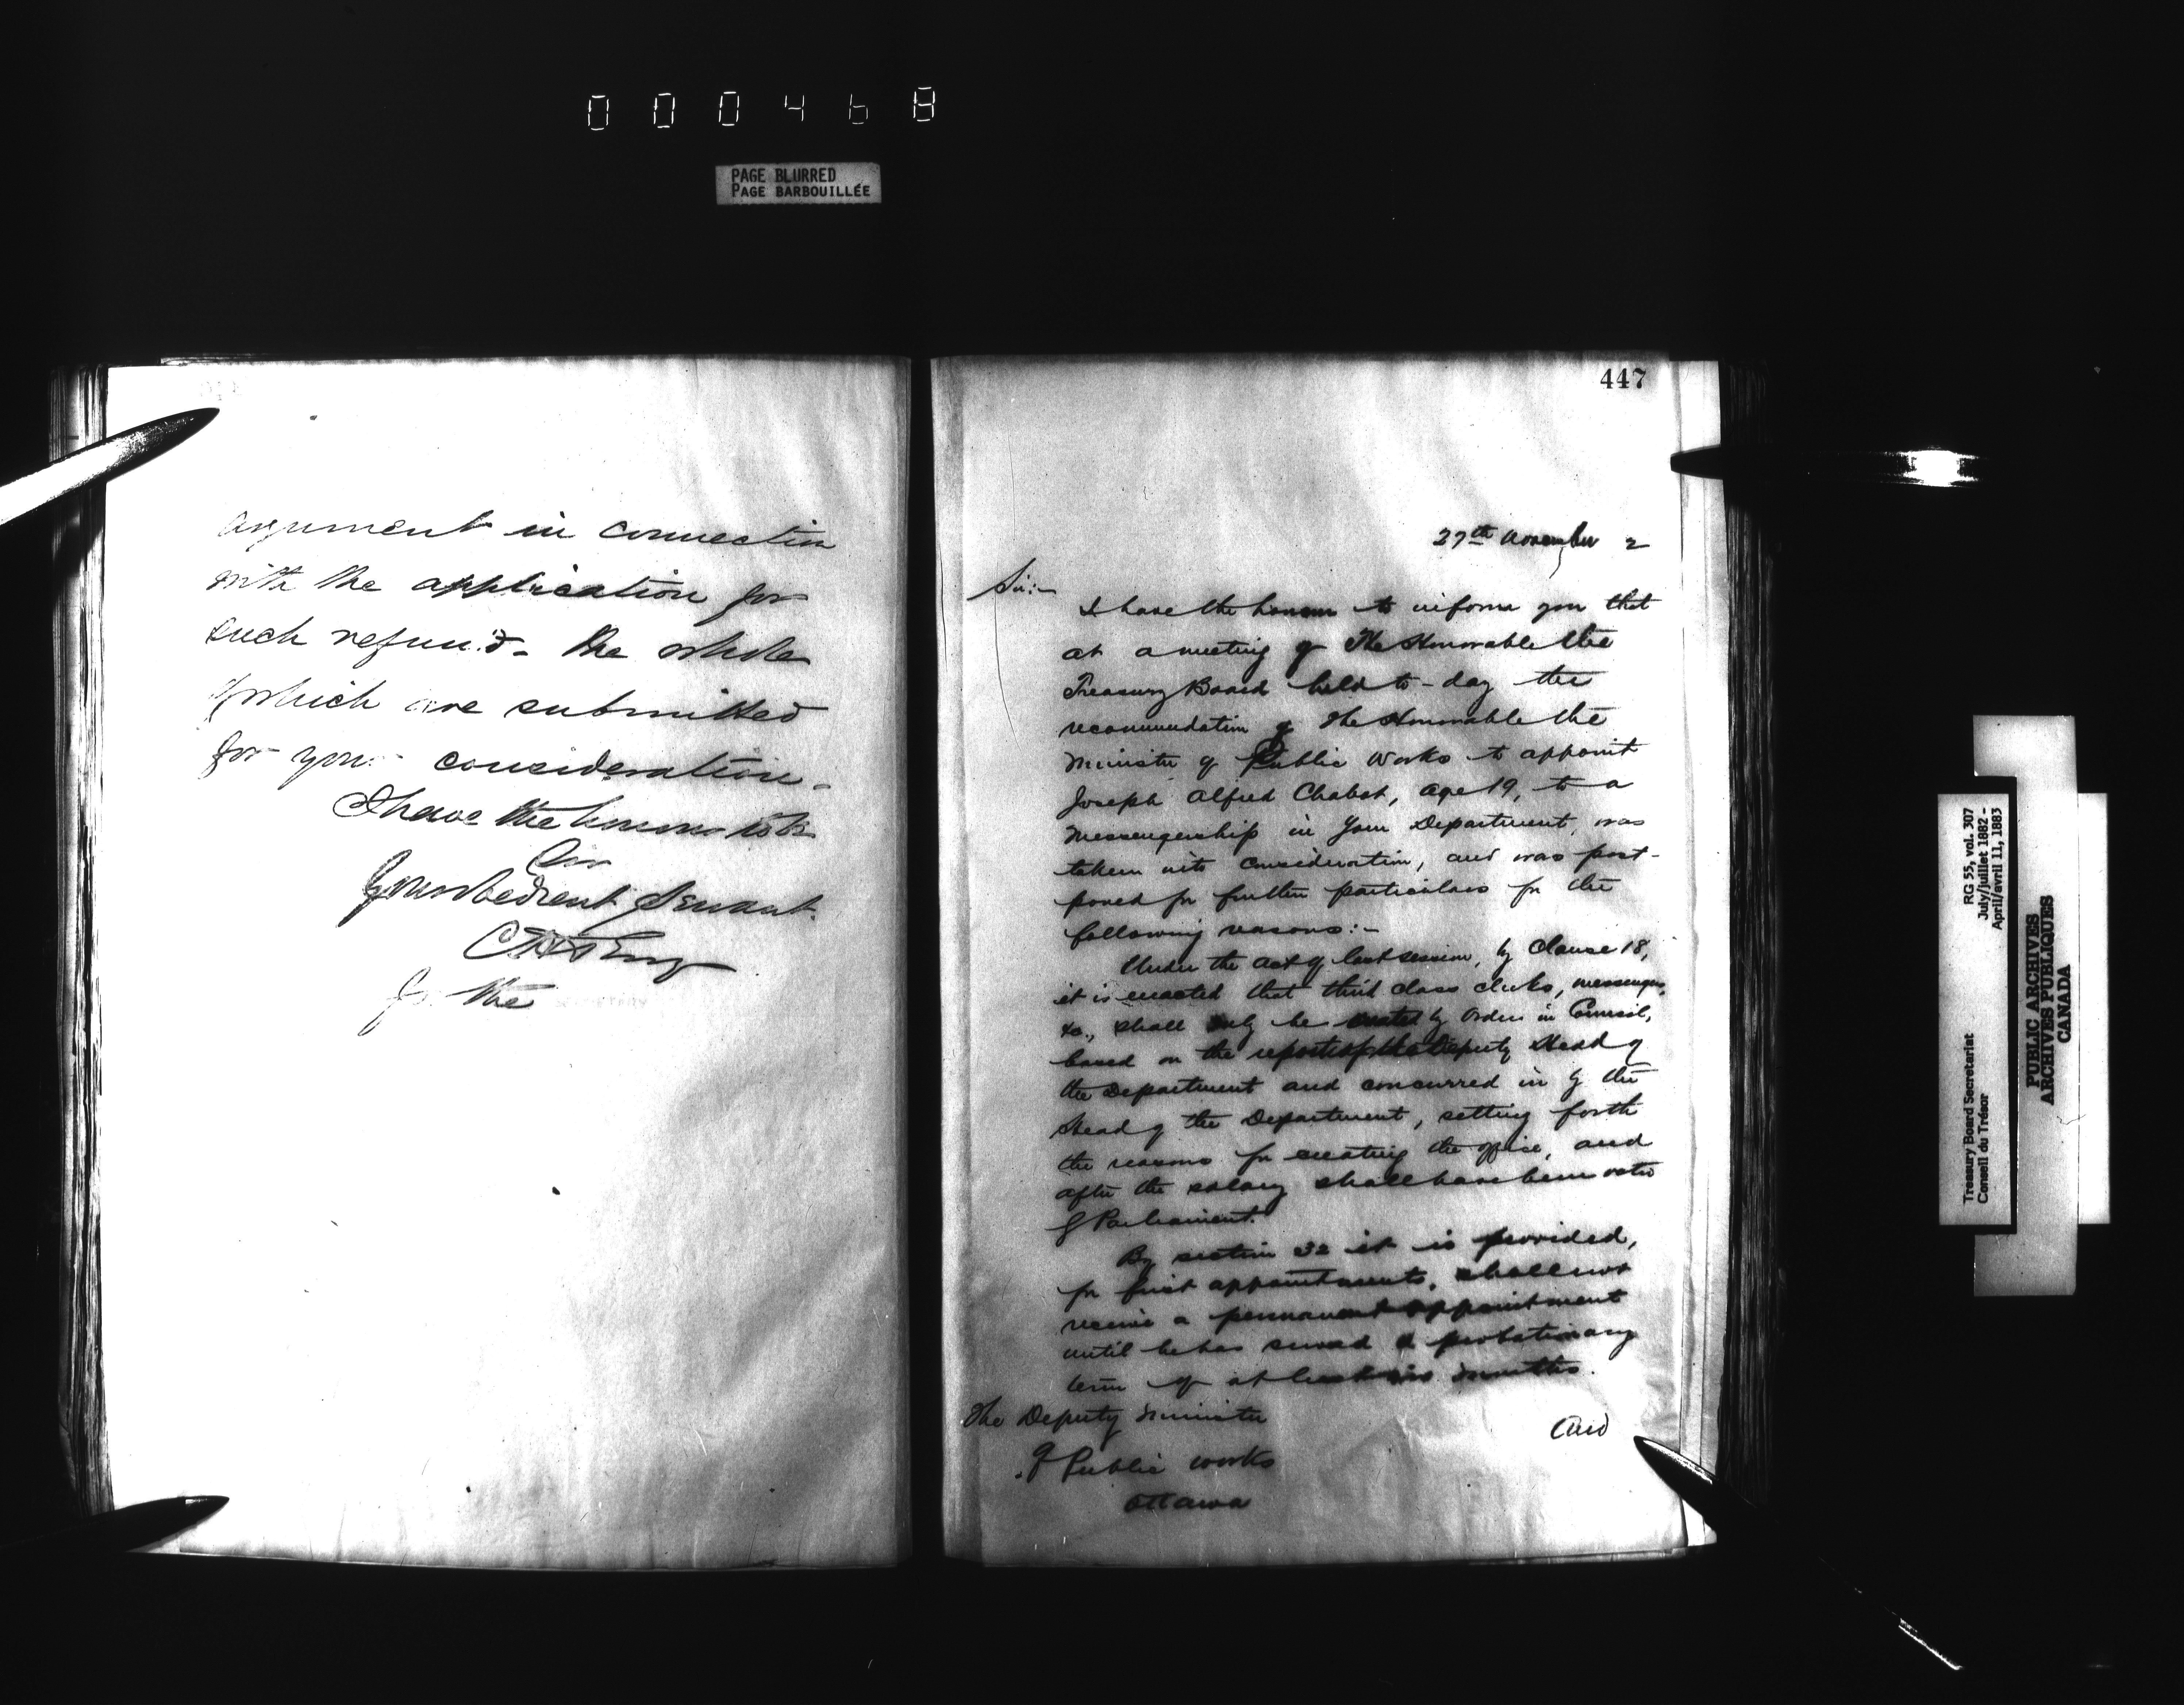 000468
PAGE BLURRED
PAGE BARBOUILLÉE
argument in connection
with the application for
such refund - the whole
of which are submitted
for your consideration -
I have the honor to be
Sir
Your obedient Servant
for the
447
27th November 2
Sir:-
I have the honour to inform you that
at a meeting of The Honorable the
Treasury Board held to-day the
recommendation of the Honorable the
Minister of Public Works to appoint
Joseph Alfred Chabot, age 19, to a
Messengership in your Department, was
taken into consideration, and was post-
poned for further particulars for the
following reasons:-
Under the act of last session, by Clause 18,
it is enacted that third class clerks, messengers,
&c., shall only be created by Order in Council,
based on the report of the Deputy Head of
the Department and concurred in by the
Head of the Department, setting forth
the reasons for creating the office, and
after the salary shall have been voted
by Parliament.
By section 32 it is provided,
for first appointments, shall not
receive a permanent appointment
until he has served a probationary
term of at least six months.
The Deputy Minister
of Public Works
Ottawa
And
RG 55, vol. 307
July/juillet 1882 -
April/avril 11, 1883
Treasury Board Secretariat
Conseil du Trésor
PUBLIC ARCHIVES
ARCHIVES PUBLIQUES
CANADA